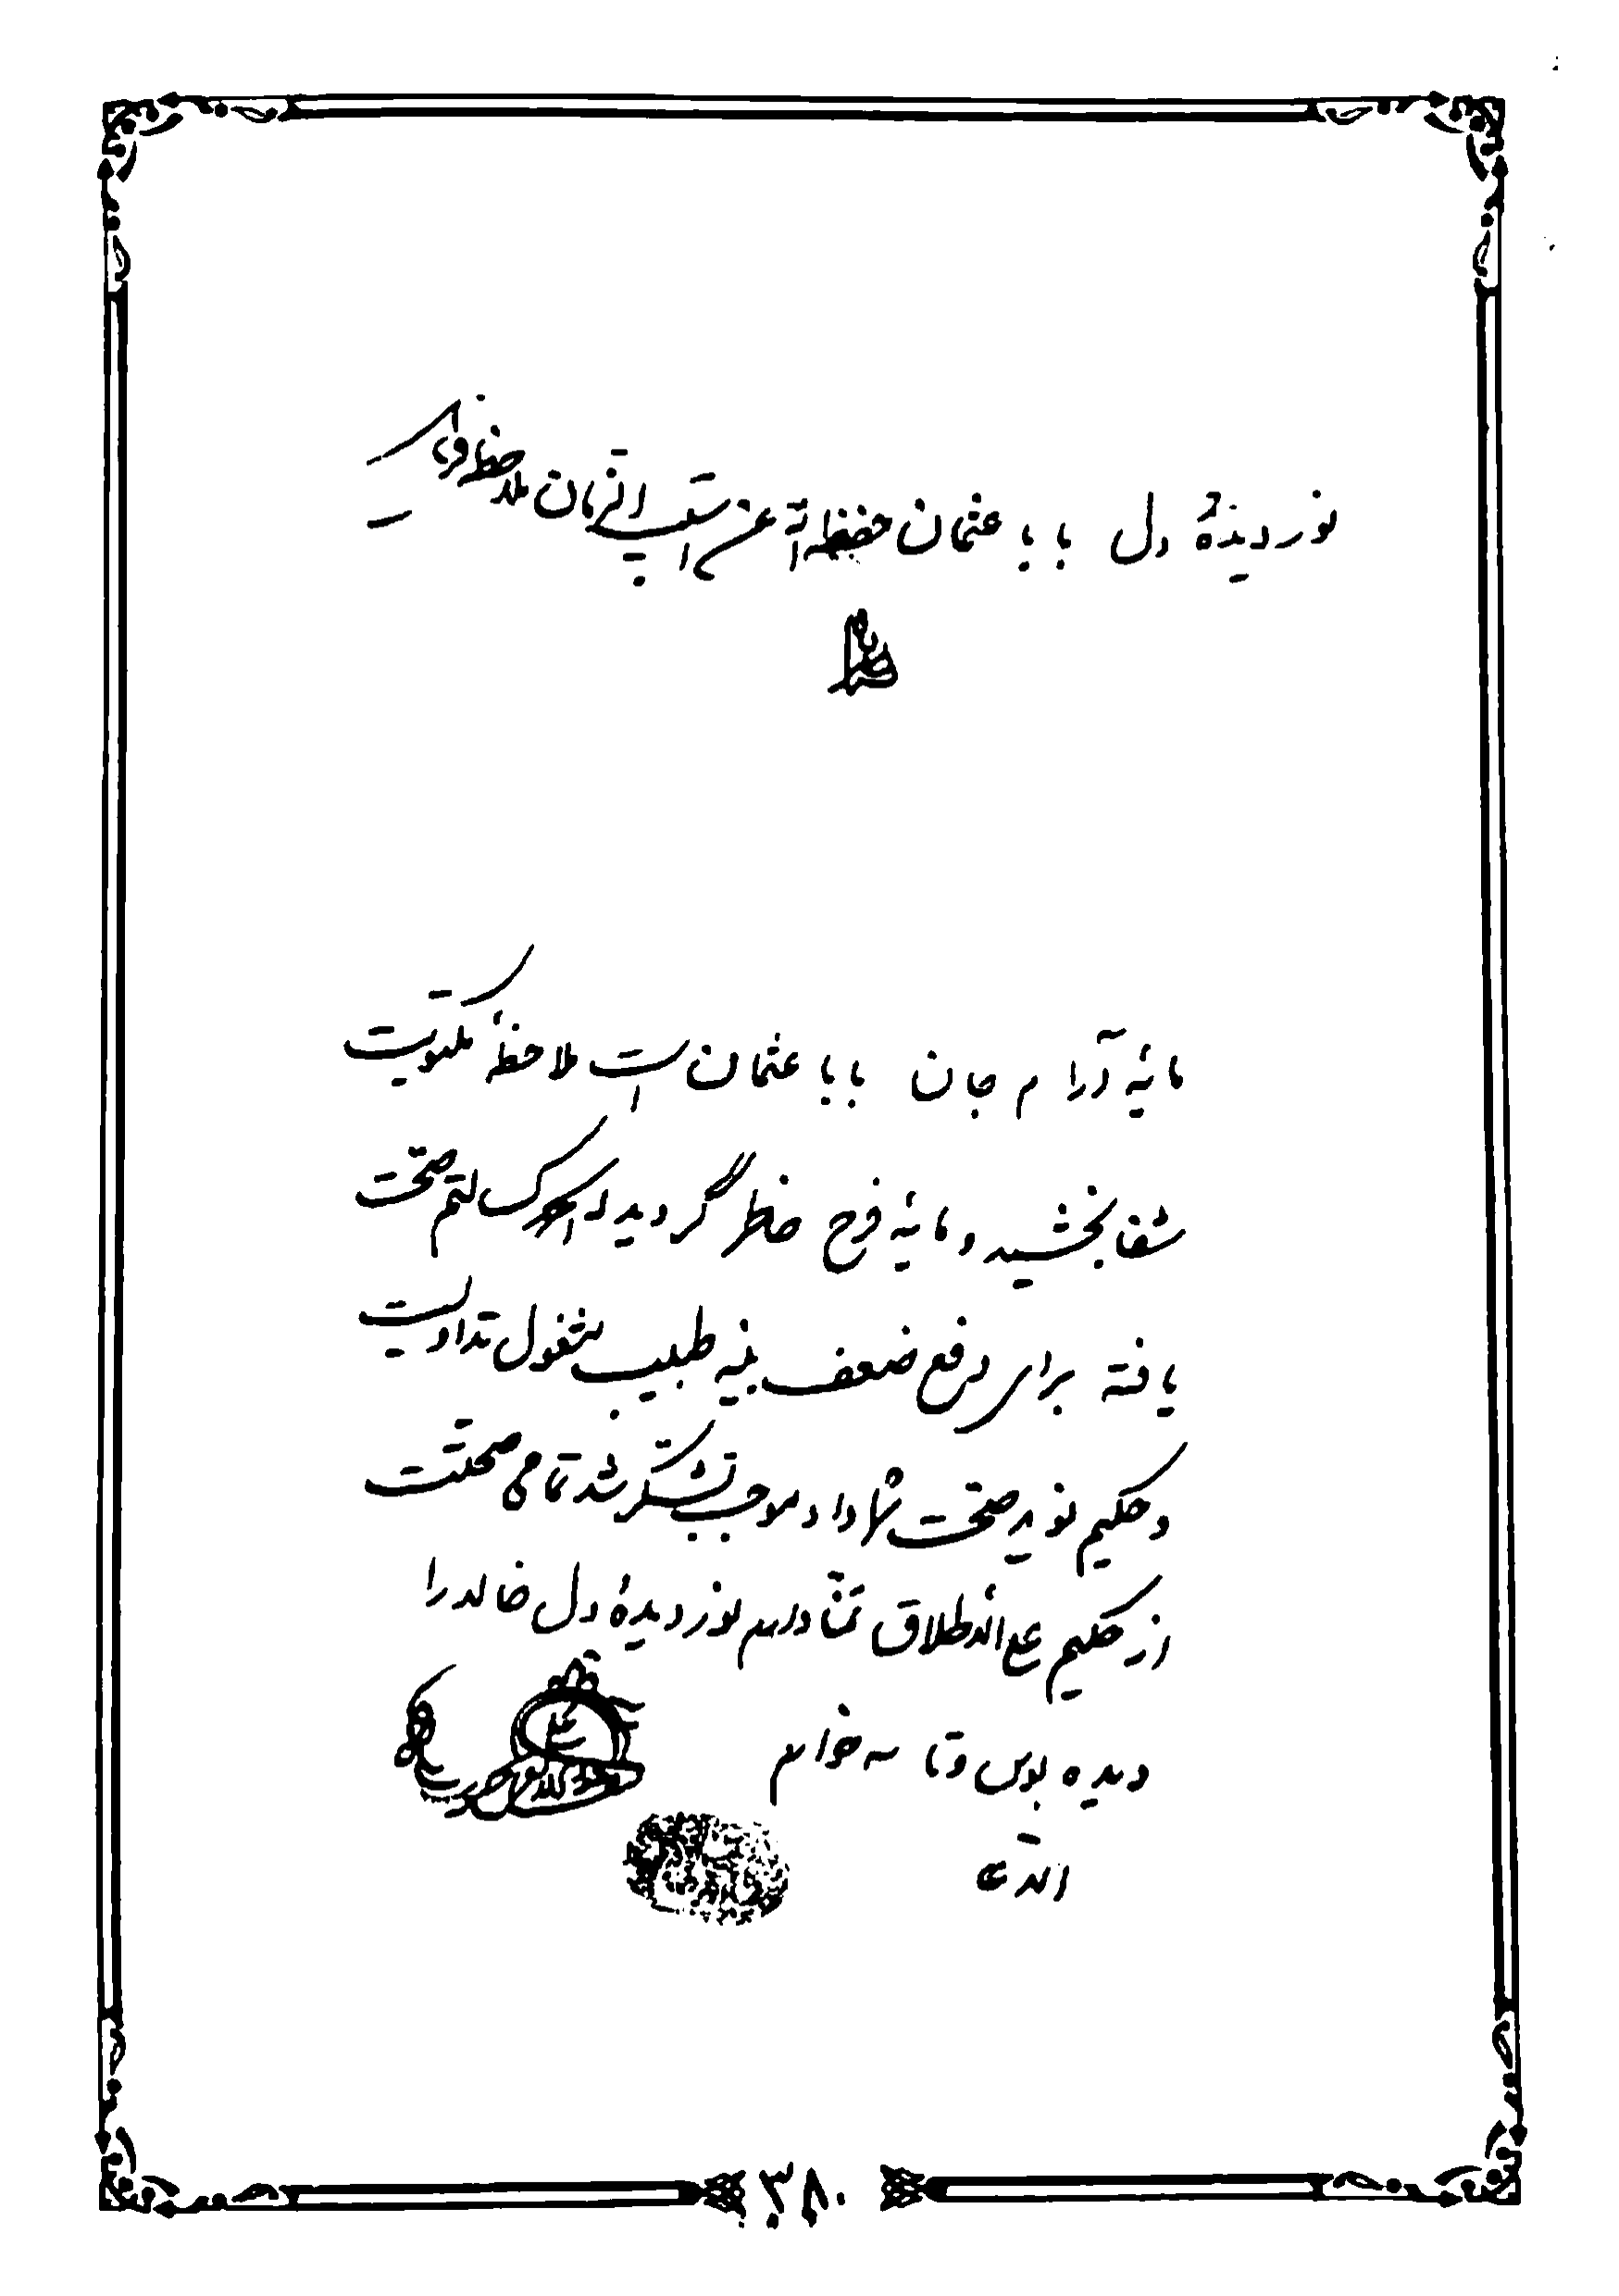 نور دیدهٔ دل بابا عثمان حفظه الله عن نوائب الزمان ملاحظه فرماید
مایهٔ آرام جان بابا عثمان است ملاحظهٔ مکتوبت
شفا بخشید و مایهٔ فرح خاطر گردید صحت
یافته برای رفع ضعف بنیه طبیب مشغول تداویست
و حکیم نوید صحت شما داد موجب تشکر شد تمامی صحتت
از حکیم علی الاطلاق تمنا دارم نور دیدهٔ دل خالد را
دیده بوس و تا مه خوانم
۳۸۰